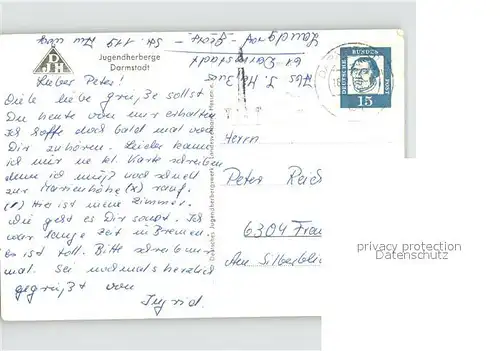 Jugendherberge
Darmstadt
DJH
Landgraf - Georg - Str. 119
61 Darmstadt
Abs. I.
DEUTSCHE BUNDESPOST
15
Lieber Peter!
Diese liebe Grüße sollst
Du heute von mir erhalten
Ich hoffe doch bald mal von
Dir zu hören. Leider kann
ich mir ne kl. Karte schreiben
denn ich muß noch schnell
zur Marienhöhe (x) rauf.
Hier ist mein Zimmer.
Wie geht es Dir sonst. Ich
war lange Zeit in Bremen.
es ist toll. Bitte schreib mir
mal. Sei nochmals herzlich
gegrüßt von
Ingrid.
Deutsches Jugendherbergswerk, Landesverband Hessen
Herrn
Peter Reich
6304
Am Silber
privacy protection
Datenschutz